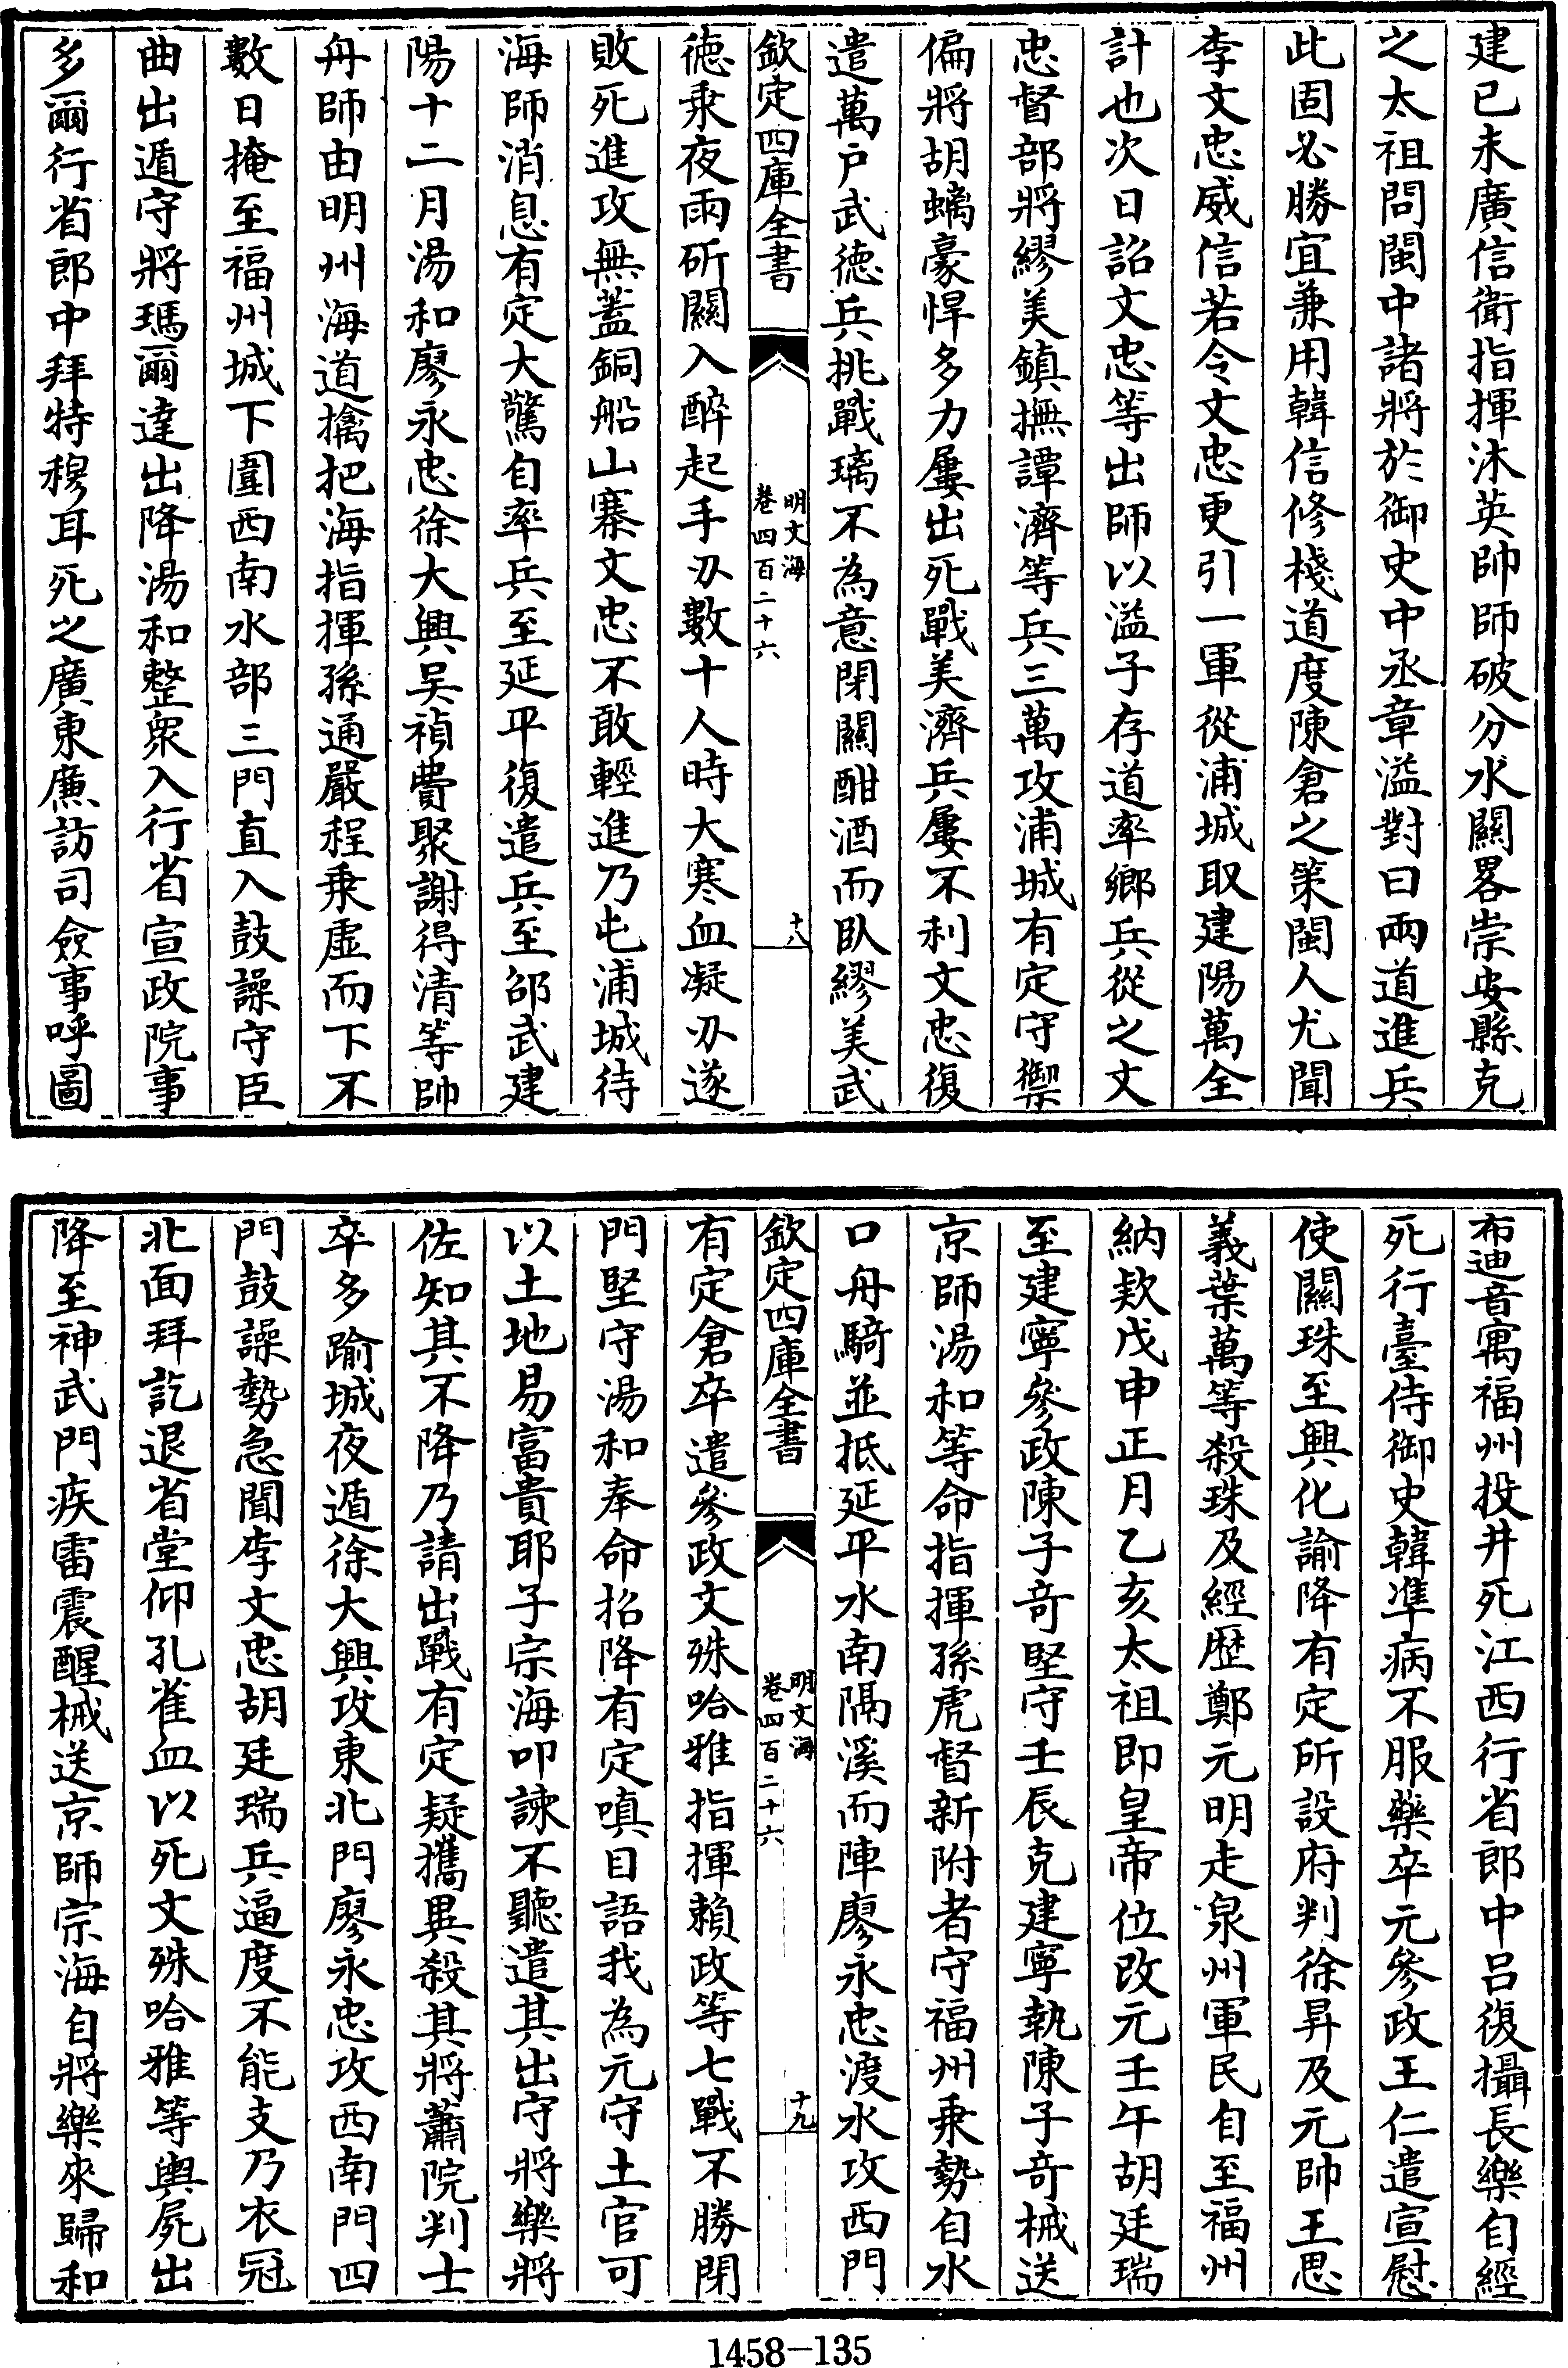 建已未廣信衛指揮沐英帥師破分水關畧崇安縣克
之太祖問閩中諸將於御史中丞章溢對曰兩道進兵
此固必勝宜兼用韓信修棧道度陳倉之策閩人尤聞
李文忠威信若令文忠更引一軍從浦城取建陽萬全
計也次日詔文忠等出師以溢子存道率鄉兵從之文
忠督部將繆美鎮撫譚濟等兵三萬攻浦城有定守禦
偏將胡螭豪悍多力屢出死戰美濟兵屢不利文忠復
遣萬戶武德兵挑戰璃不為意閉關酣酒而臥繆美武
欽定四庫全書
明文海
卷四百二十六
十八
德乘夜雨斫關入醉起手刃數十人時大寒血凝刃遂
敗死進攻無蓋銅船山寨文忠不敢輕進乃屯浦城待
海師消息有定大驚自率兵至延平復遣兵至邵武建
陽十二月湯和廖永忠徐大興吳禎費聚謝得清等帥
舟師由明州海道擒把海指揮孫通嚴程乘虛而下不
數日掩至福州城下圍西南水部三門直入鼓譟守臣
曲出遁守將瑪爾達出降湯和整衆入行省宣政院事
多爾行省郎中拜特穆耳死之廣東廉訪司僉事呼圖
布迪音寓福州投井死江西行省郎中呂復攝長樂自經
死行臺侍御史韓準病不服藥卒元參政王仁遣宣慰
使關珠至興化諭降有定所設府判徐昇及元帥王思
義葉萬等殺珠及經歷鄭元明走泉州軍民自至福州
納欵戊申正月乙亥太祖即皇帝位改元壬午胡廷瑞
至建寧參政陳子奇堅守壬辰克建寧執陳子奇械送
京師湯和等命指揮孫虎督新附者守福州乘勢自水
口舟騎並抵延平水南隔溪而陣廖永忠渡水攻西門
欽定四庫全書
明文海
卷四百二十六
十九
有定倉卒遣參政文殊哈雅指揮賴政等七戰不勝閉
門堅守湯和奉命招降有定嗔目語我為元守土官可
以土地易富貴耶子宗海叩諫不聽遣其出守將樂將
佐知其不降乃請出戰有定疑攜異殺其將蕭院判士
卒多踰城夜遁徐大興攻東北門廖永忠攻西南門四
門鼓譟勢急聞李文忠胡廷瑞兵逼度不能支乃衣冠
北面拜訖退省堂仰孔雀血以死文殊哈雅等輿屍出
降至神武門疾雷震醒械送京師宗海自將樂來歸和
1458-135